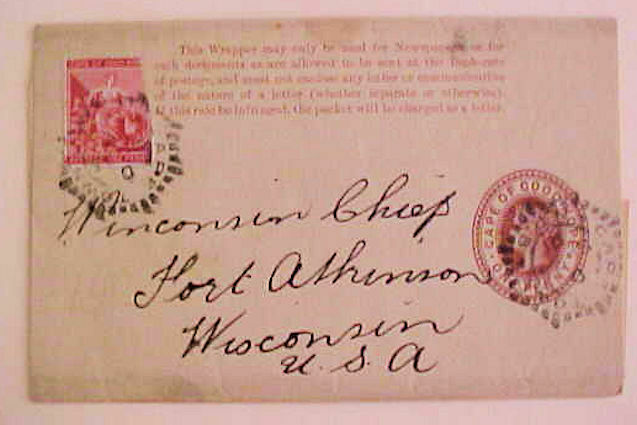 This Wrapper may only be used for Newspapers, or for
such documents as are allowed to be sent at the Book-rate
of postage, and must not enclose any letter or communication
of the nature of a letter (whether separate or otherwise).
If this rule be infringed, the packet will be charged as a letter.
CAPE OF GOOD HOPE
Winconsin Chief
Fort Atkinson
Wisconsin
U. S. A
CAPE OF GOOD HOPE